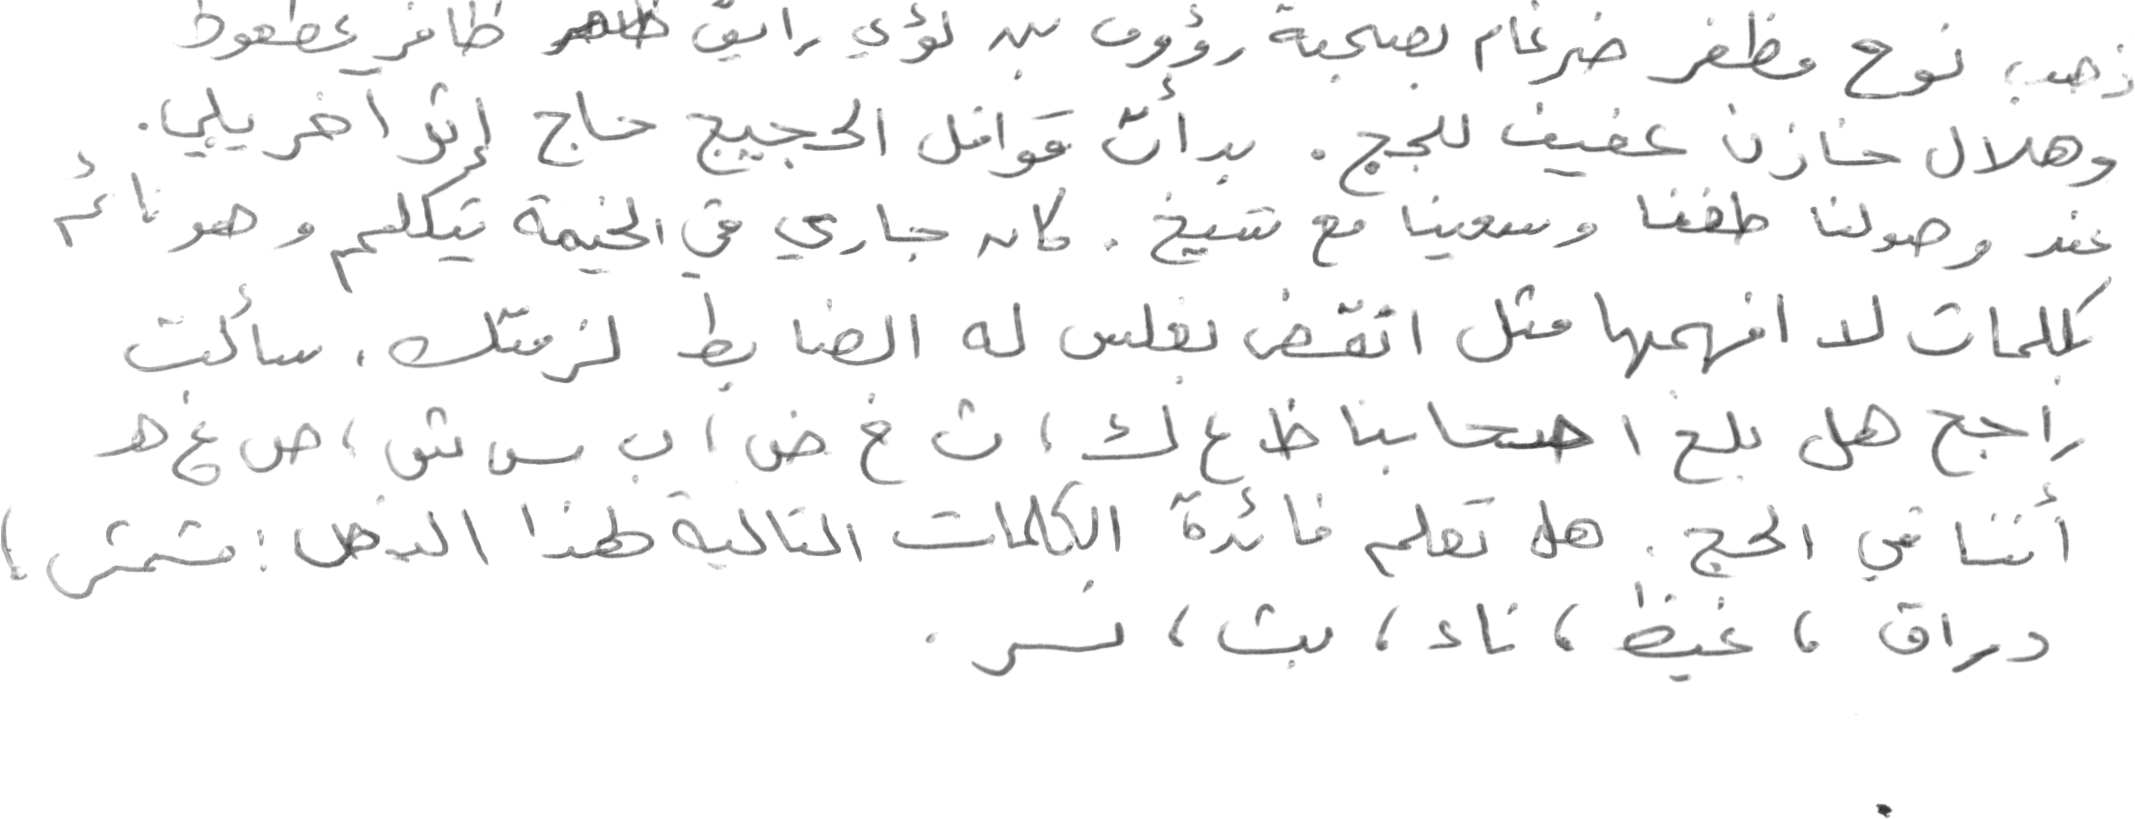 ذهب نوح مظفر ضرغام بصحبة رؤوف بن لؤي رايق ظافر عطعوط
وهلال خازن عفيف للحج. بدأت قوافل الحجيج حاج إثر آخر يلبي.
عند وصولنا طفنا وسعينا مع شيخ. كان جاري في الخيمة يتكلم وهو نائم
بكلمات لا افهمها مثل انقض نغلس له الضابط لزمتك. سألت
راجح هل بلغ اصحابنا ظ ع ك، ث غ ض، ب س ش، ص غ هـ
أننا في الحج. هل تعلم فائدة الكلمات التالية لهذا النص: مشمش،
دراق، غيظ، ناء، بث، نسر.